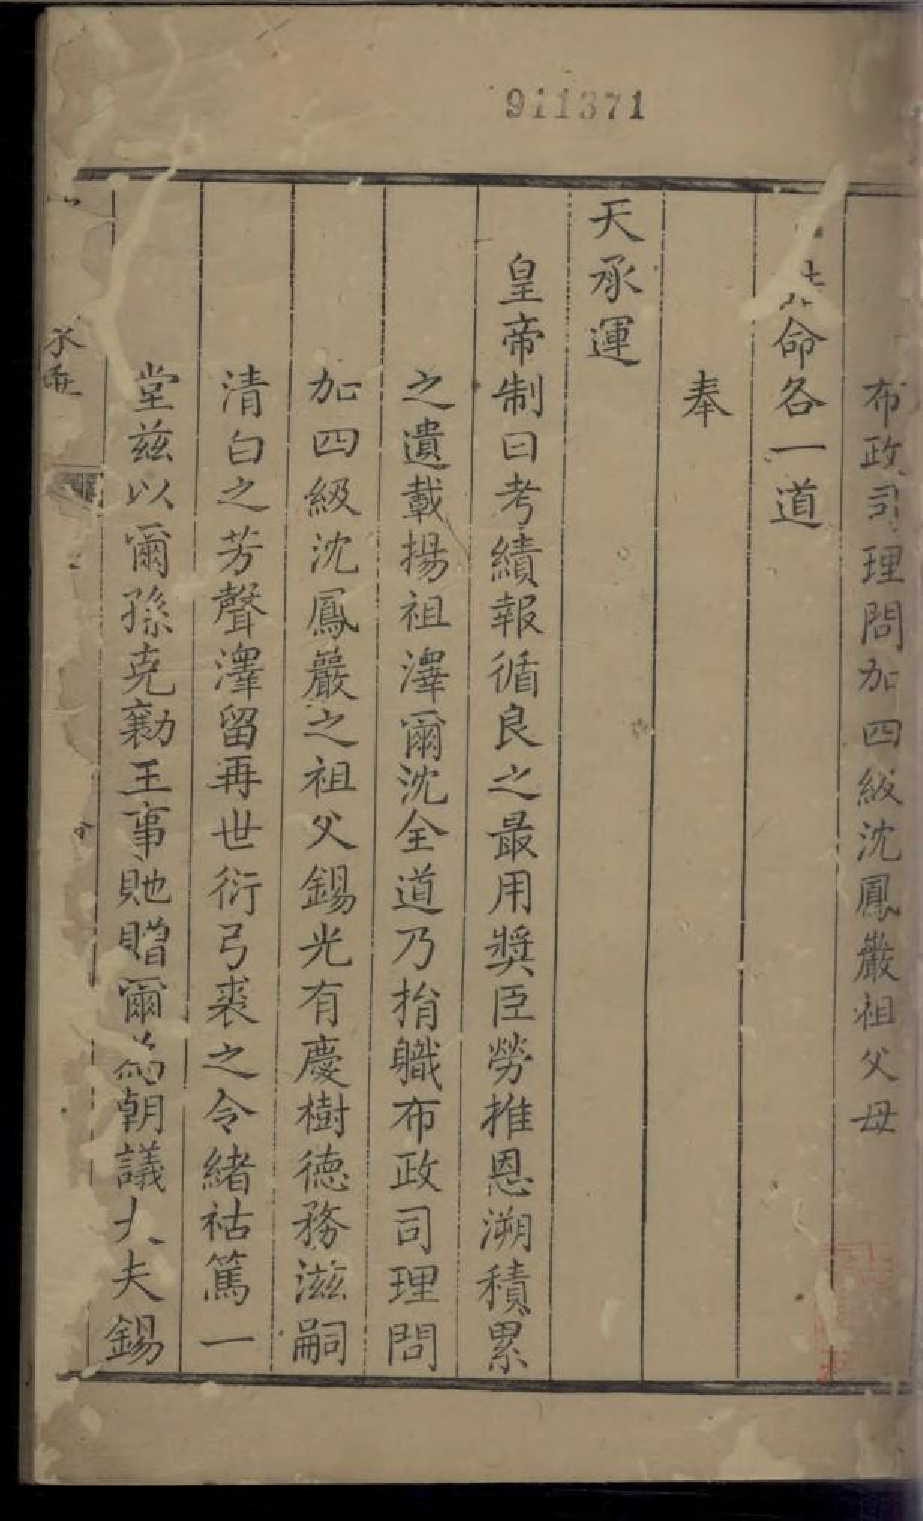 911371
布政司理問加四級沈鳳巖祖父母
命各一道
奉
天承運
皇帝制曰考績報循良之最用獎臣勞推恩溯積累
之遺載揚祖澤爾沈全道乃捐職布政司理問
加四級沈鳳巖之祖父錫光有慶樹德務滋嗣
清白之芳聲澤留再世衍弓裘之令緒祜篤一
堂茲以爾孫克勷王事貤贈爾為朝議大夫錫